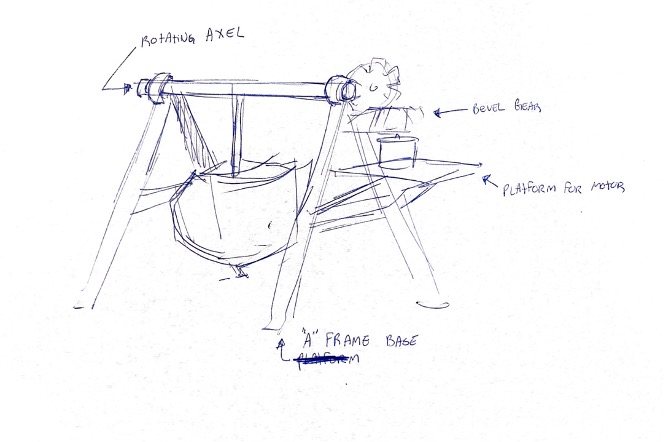 ROTATING AXEL
BEVEL GEAR
PLATFORM FOR MOTOR
"A" FRAME BASE
PLATFORM